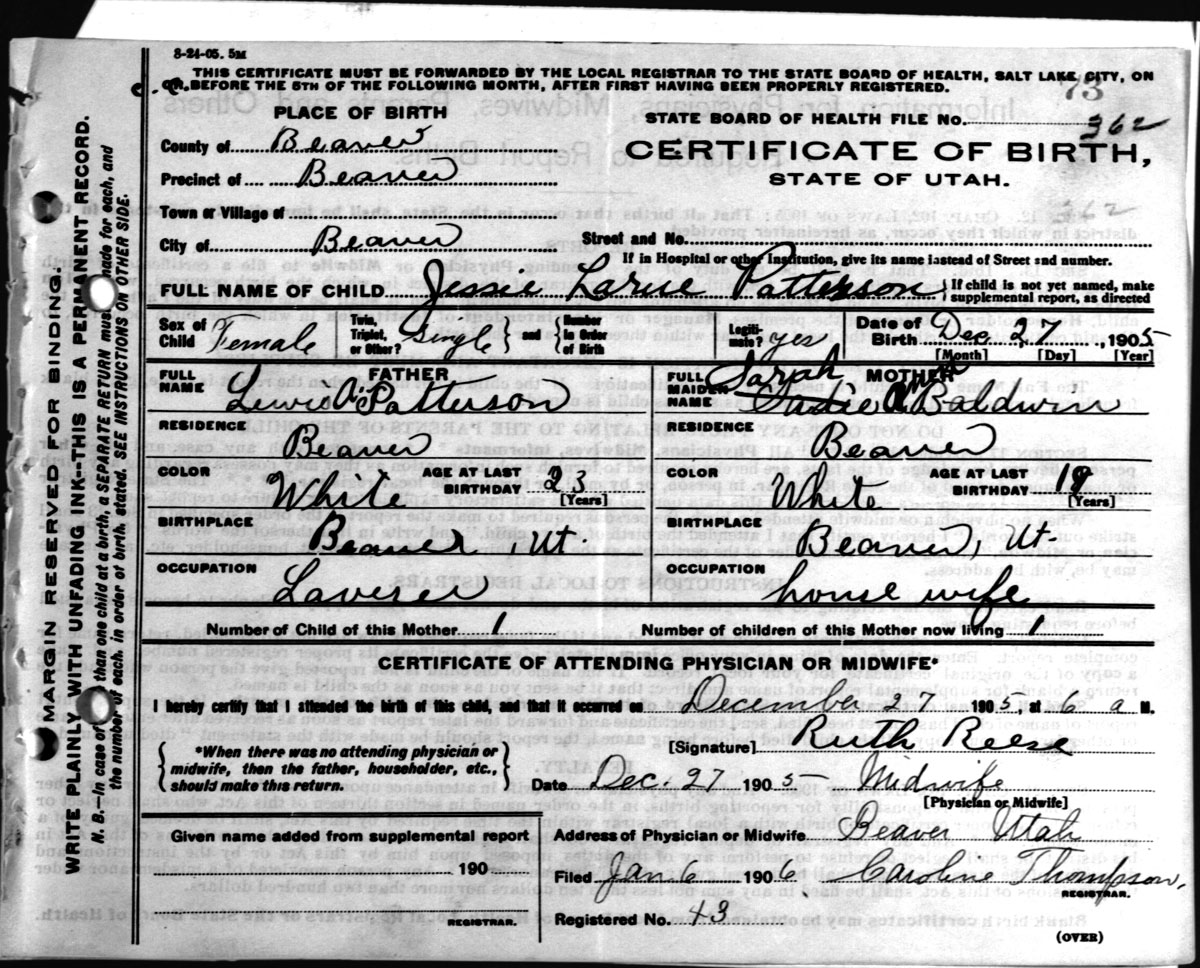 8-24-05. 5M
THIS CERTIFICATE MUST BE FORWARDED BY THE LOCAL REGISTRAR TO THE STATE BOARD OF HEALTH, SALT LAKE CITY, ON
OR BEFORE THE 5TH OF THE FOLLOWING MONTH, AFTER FIRST HAVING BEEN PROPERLY REGISTERED.
73
PLACE OF BIRTH
STATE BOARD OF HEALTH FILE No. 362
County of Beaver
CERTIFICATE OF BIRTH,
Precinct of Beaver
STATE OF UTAH.
Town or Village of
362
City of Beaver
Street and No.
If in Hospital or other Institution, give its name instead of Street and number.
FULL NAME OF CHILD Jessie Larue Patterson } If child is not yet named, make
supplemental report, as directed
Sex of Child Female
Twin, Triplet, or Other? Single } and { Number in Order of Birth
Legiti-mate? yes
Date of Birth Dec. 27, 1905
[Month] [Day] [Year]
FATHER
FULL NAME Lewis Patterson
MOTHER
FULL MAIDEN NAME Sarah Sadie Baldwin
RESIDENCE
Beaver
RESIDENCE
Beaver
COLOR
White
AGE AT LAST BIRTHDAY 23
[Years]
COLOR
White
AGE AT LAST BIRTHDAY 19
[Years]
BIRTHPLACE
Beaver, Ut.
BIRTHPLACE
Beaver, Ut.
OCCUPATION
OCCUPATION
house wife
Number of Child of this Mother 1
Number of children of this Mother now living 1
CERTIFICATE OF ATTENDING PHYSICIAN OR MIDWIFE*
I hereby certify that I attended the birth of this child, and that it occurred on December 27 1905, at 6 a M.
{ *When there was no attending physician or
midwife, then the father, householder, etc.,
should make this return. }
[Signature] Ruth Reese
Date Dec. 27 1905 Midwife
[Physician or Midwife]
Given name added from supplemental report
190
REGISTRAR.
Address of Physician or Midwife Beaver Utah
Filed Jan. 6 1906 Caroline Thompson,
REGISTRAR.
Registered No. 43
(OVER)
MARGIN RESERVED FOR BINDING.
WRITE PLAINLY WITH UNFADING INK--THIS IS A PERMANENT RECORD.
N. B. In case of more than one child at a birth, a SEPARATE RETURN must be made for each, and
the number of each, in order of birth, stated. SEE INSTRUCTIONS ON OTHER SIDE.